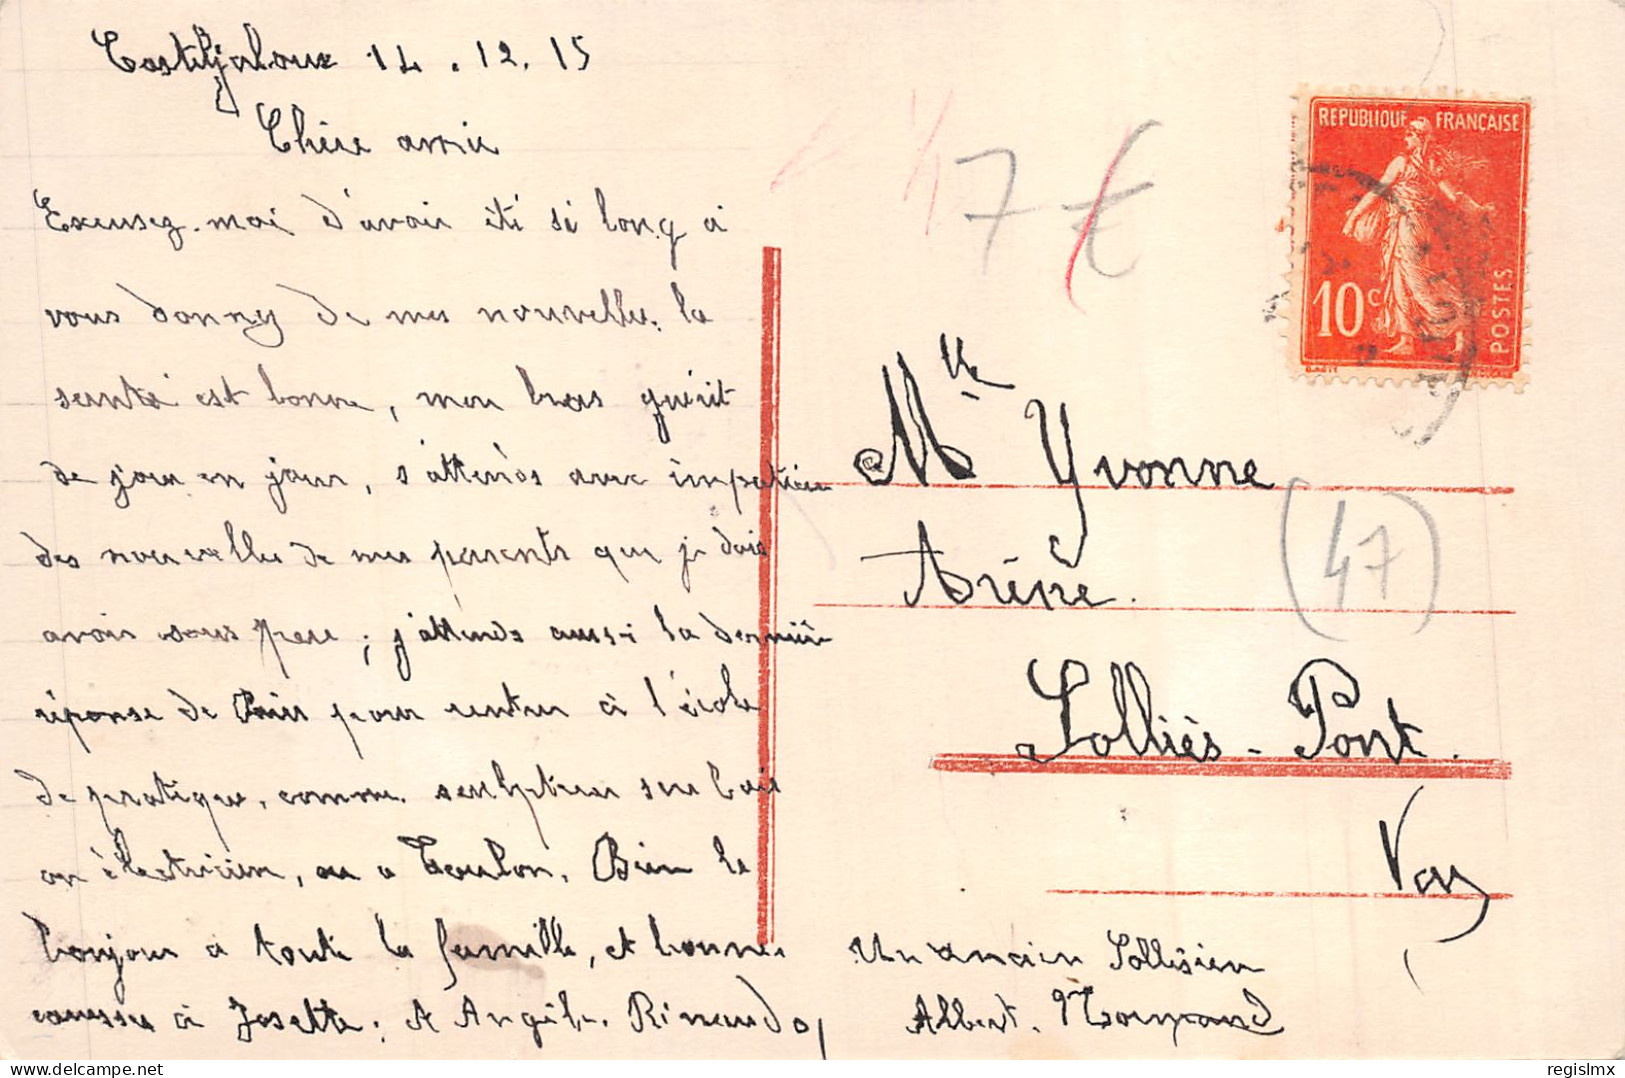 Casteljaloux 14.12.15
Chère amie
Excusez-moi d'avoir été si long à
vous donnez de mes nouvelles. la
santé est bonne, mon bras guérit
de jour en jour, s'attends avec impatien
des nouvelles de mes parents que je dois
avoir sous peu ; j'attends aussi la derniè
réponse de Paris pour rentrer à l'école
de pratique, comme sculpteur sur bois
ou électricien, ou a Toulon. Bien le
bonjour a toute la famille, et bonnes
caresses à Josette. A Angèle. Rinaudo,
7€
REPUBLIQUE FRANÇAISE
10c
POSTES
Mlle Yvonne
Arène.
(47)
Solliès-Pont.
Var
Un ancien Solliésien
Albert. Normand
regislmx